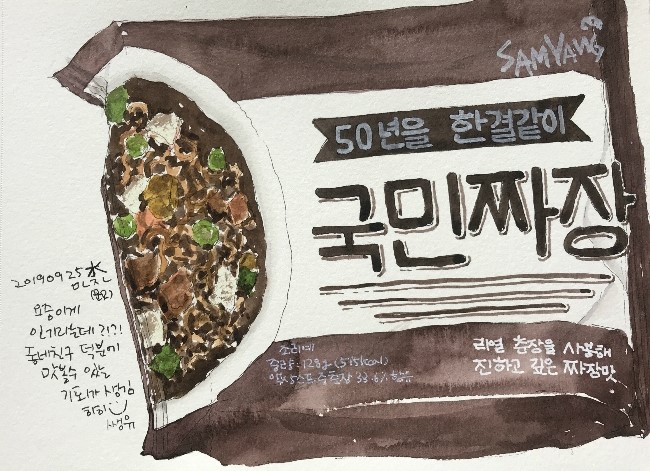 SAMYANG
50년을 한결같이
국민짜장
조리예
중량: 128g (575kcal)
33.6% 함유
리얼 춘장을 사용해
진하고 깊은 짜장맛
20190925 水
요즘 이게
인기라는데 리?!
동네친구 덕분에
맛볼수 있는
기회가 생김
히히